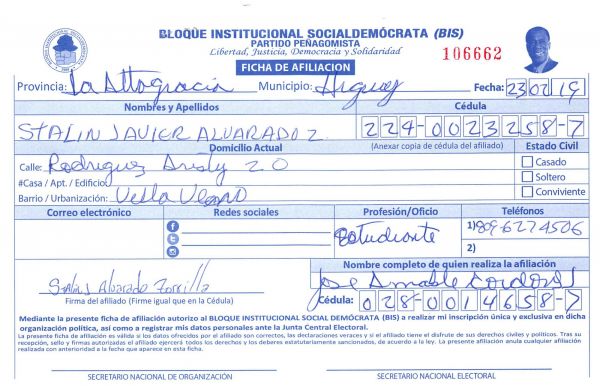 BLOQUE INSTITUCIONAL SOCIALDEMÓCRATA (BIS)
PARTIDO PEÑAGOMISTA
Libertad, Justicia, Democracia y Solidaridad
106662
FICHA DE AFILIACION
Provincia: La Altagracia Municipio: Higuey Fecha: 23 02 19
Nombres y Apellidos Cédula
STALIN JAVIER ALVARADO Z. 224-0023258-7
Domicilio Actual (Anexar copia de cédula del afiliado) Estado Civil
Calle: Rodriguez 20 Casado
#Casa / Apt. / Edificio: Soltero
Barrio / Urbanización: Conviviente
Correo electrónico Redes sociales Profesión/Oficio Teléfonos
Estudiante 1) 809 6274506
2)
Nombre completo de quien realiza la afiliación
Stalin Alvarado Zorrilla Jose Amable
Firma del afiliado (Firme igual que en la Cédula) Cédula: 028-0014658-7
Mediante la presente ficha de afiliación autorizo al BLOQUE INSTITUCIONAL SOCIAL DEMÓCRATA (BIS) a realizar mi inscripción única y exclusiva en dicha
organización política, así como a registrar mis datos personales ante la Junta Central Electoral.
La presente ficha de afiliación es válida si los datos ofrecidos por el afiliado son correctos, las declaraciones veraces y si el afiliado tiene el disfrute de sus derechos civiles y políticos. Tras su
recepción, sello y firmas autorizadas el afiliado ejercerá todos los derechos y los deberes estatutariamente sancionados, de acuerdo a la ley. La presente afiliación anula cualquier afiliación
realizada con anterioridad a la fecha que aparece en esta ficha.
SECRETARIO NACIONAL DE ORGANIZACIÓN SECRETARIO NACIONAL ELECTORAL